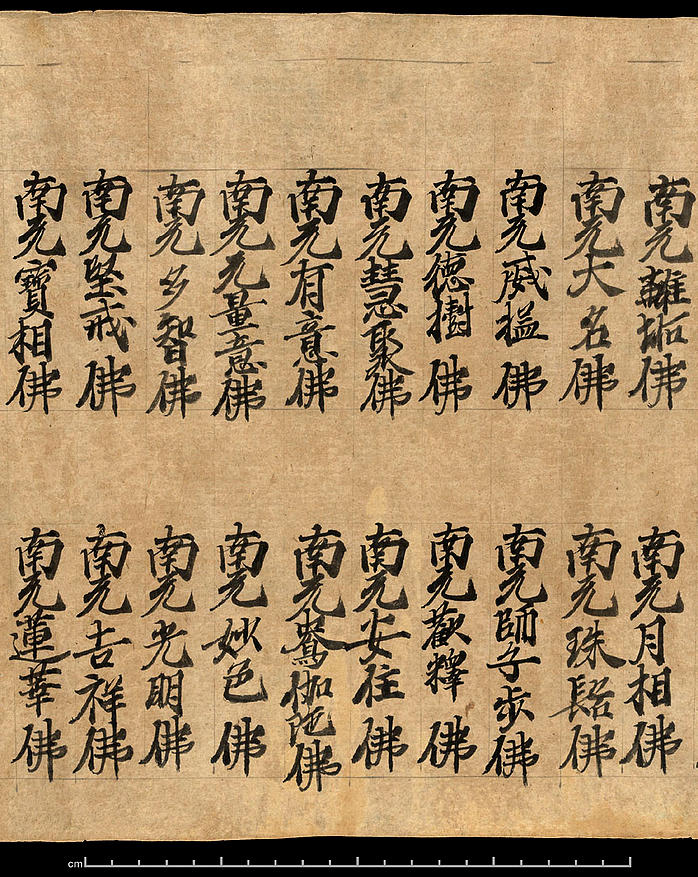 南无離垢佛 南无月相佛
南无大名佛 南无珠髻佛
南无威猛佛 南无師子步佛
南无德樹佛 南无歡釋佛
南无慧聚佛 南无安住佛
南无有意佛 南无鴦伽陁佛
南无无量意佛 南无妙色佛
南无多智佛 南无光明佛
南无堅戒佛 南无吉祥佛
南无寶相佛 南无蓮華佛
cm